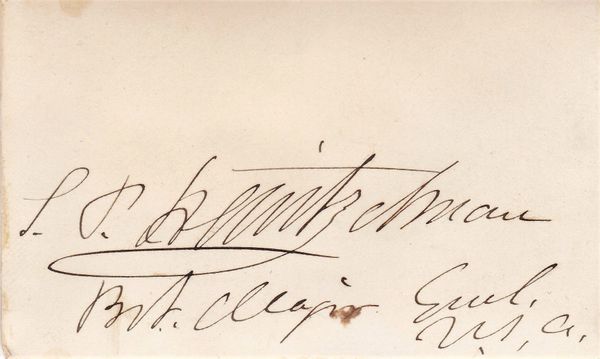 S. P. Heintzelman
Bvt. Major Genl.
U.S.A.